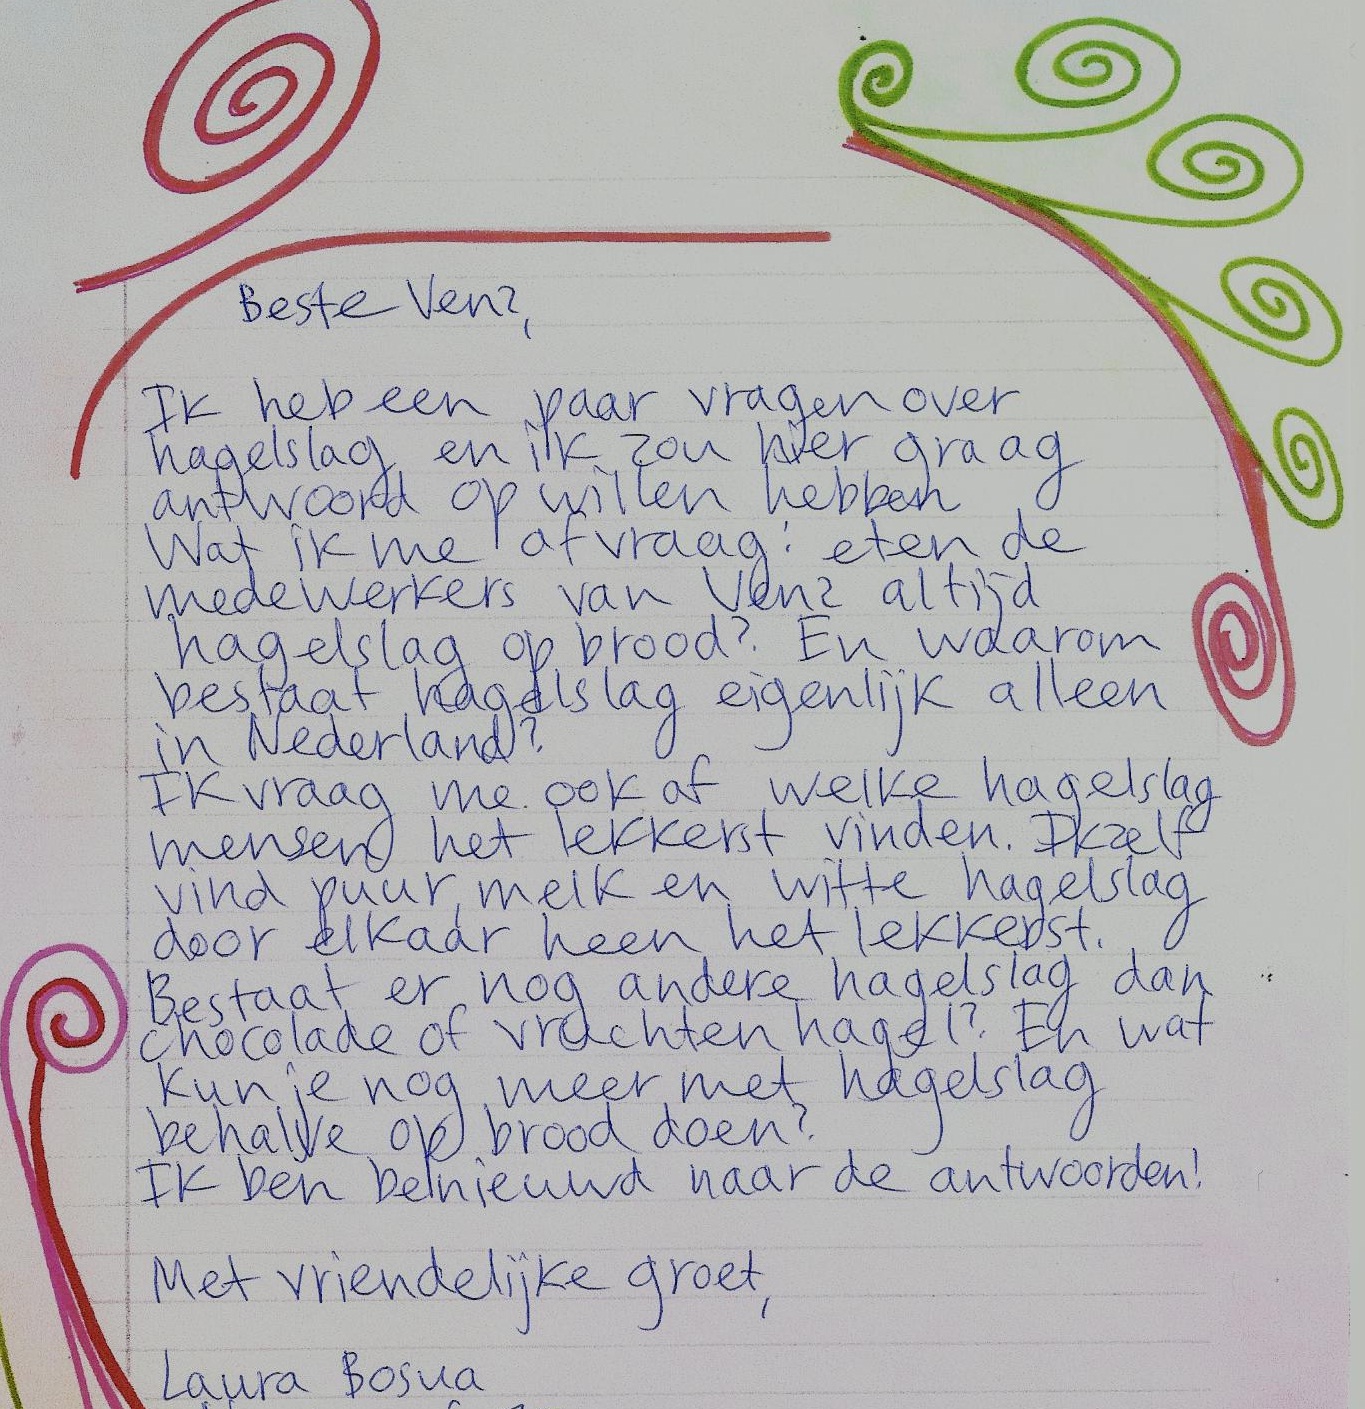 Beste Venz,
Ik heb een paar vragen over
hagelslag en ik zou hier graag
antwoord op willen hebben
Wat ik me afvraag: eten de
medewerkers van Venz altijd
hagelslag op brood? En waarom
bestaat hagelslag eigenlijk alleen
in Nederland?
Ik vraag me ook af welke hagelslag
mensen het lekkerst vinden. Ikzelf
vind puur, melk en witte hagelslag
door elkaar heen het lekkerst.
Bestaat er nog andere hagelslag dan
chocolade of vruchtenhagel? En wat
kun je nog meer met hagelslag
behalve op brood doen?
Ik ben benieuwd naar de antwoorden!
Met vriendelijke groet,
Laura Bosua